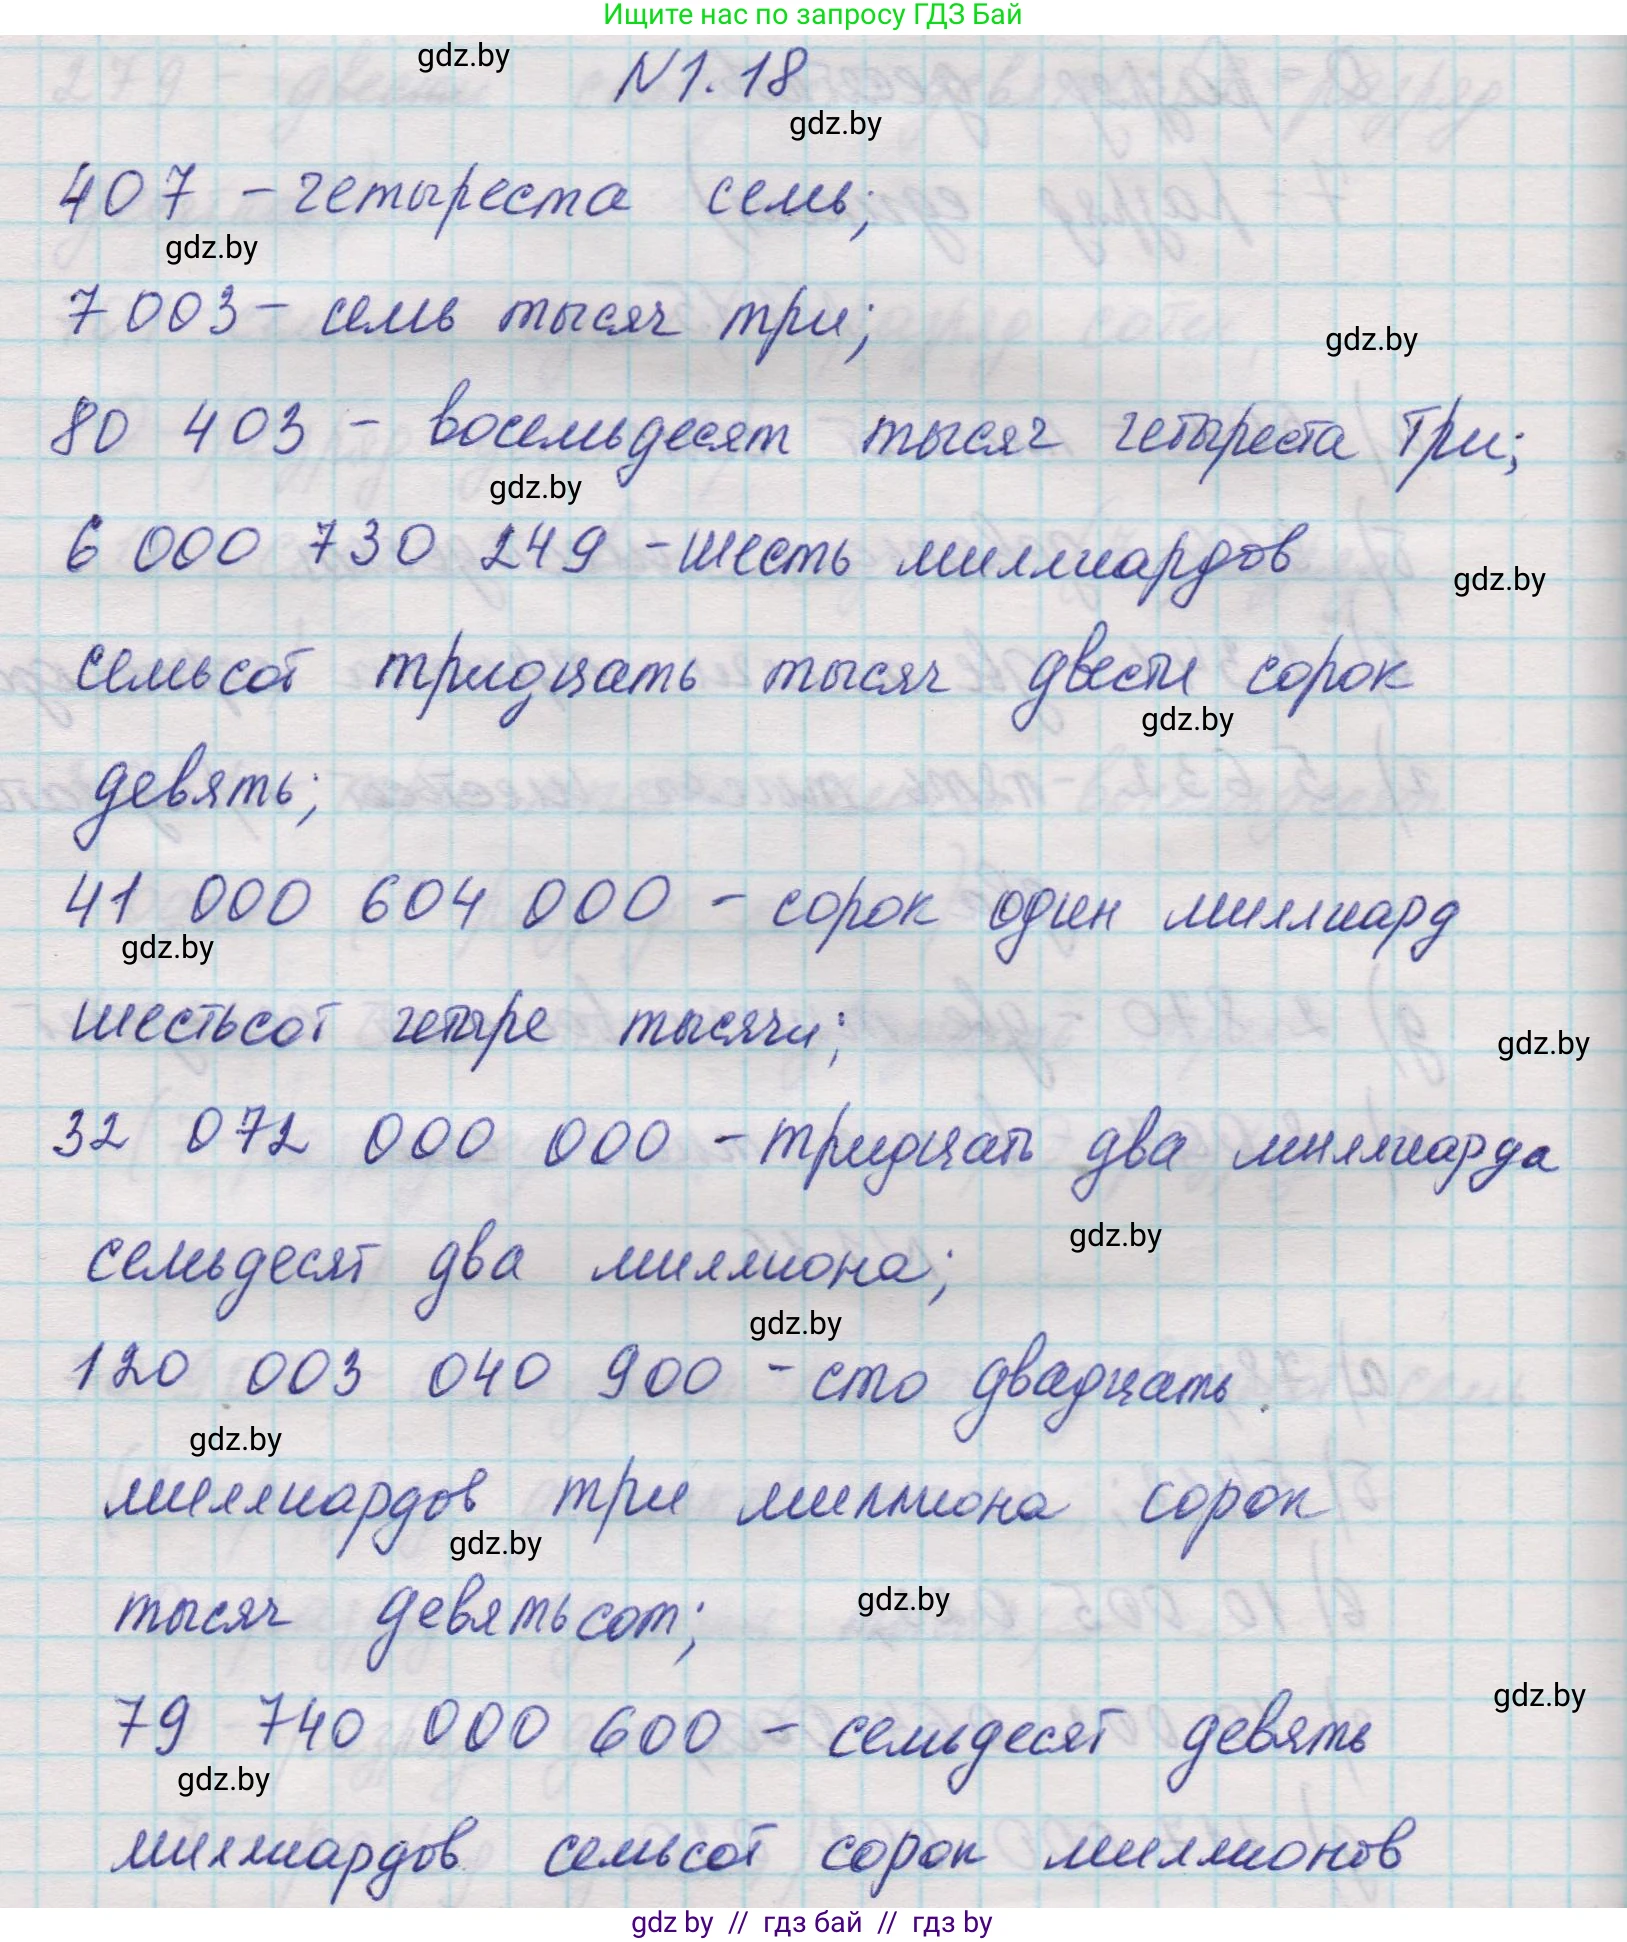 Ищите нас по запросу ГДЗ Бай
gdz.by
N1.18
gdz.by
407 - четыреста семь;
gdz.by
7003 - семь тысяч три;
gdz.by
80 403 - восемьдесят тысяч четыреста три;
gdz.by
6 000 730 249 - шесть миллиардов
gdz.by
семьсот тридцать тысяч двести сорок
gdz.by
девять;
41 000 604 000 - сорок один миллиард
gdz.by
шестьсот четыре тысячи;
gdz.by
32 072 000 000 - тридцать два миллиарда
gdz.by
семьдесят два миллиона;
gdz.by
120 003 040 900 - сто двадцать
gdz.by
миллиардов три миллиона сорок
gdz.by
тысяч девятьсот;
gdz.by
79 740 000 600 - семьдесят девять
gdz.by
gdz.by
миллиардов семьсот сорок миллионов
gdz by // гдз бай // гдз by